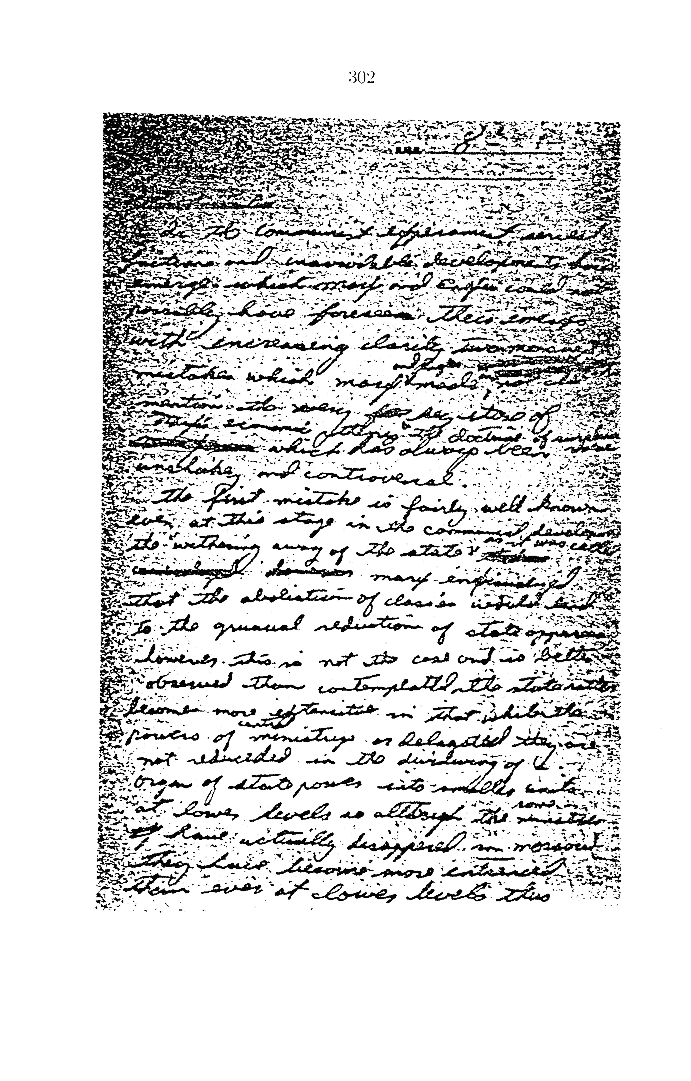 302
As the communist experiment
and unavoidable developments have
emerge which marx and Engles could not
possibly have foreseen
with increasing clarity two
mistakes which marx and Engles made,
mention the very key item of
economic the doctrine of surplus value
which has always been
unshaky and controversal.
The first mistake is fairly well known
even at this stage in the communist
the "withering away of the state" as it was called
marx
that the abolistion of classes would lead
to the grunual reduction of state apparaus
however this is not the case and is better
observed than contemplatted. the state rather
becomes more extansitive in that while the
powers of central ministrys or delagatted they are
not reducided in the dividuring of
organ of state power into smaller units
at lower levels so although the
have actually disappered in moscow
they have become more entrenced
than ever at lower levels thus